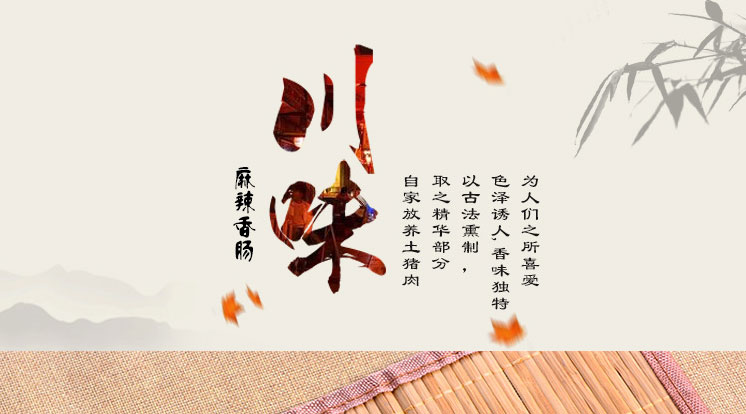 川味
麻辣香肠
自家放养土猪肉
取之精华部分
以古法熏制，
色泽诱人,香味独特
为人们之所喜爱